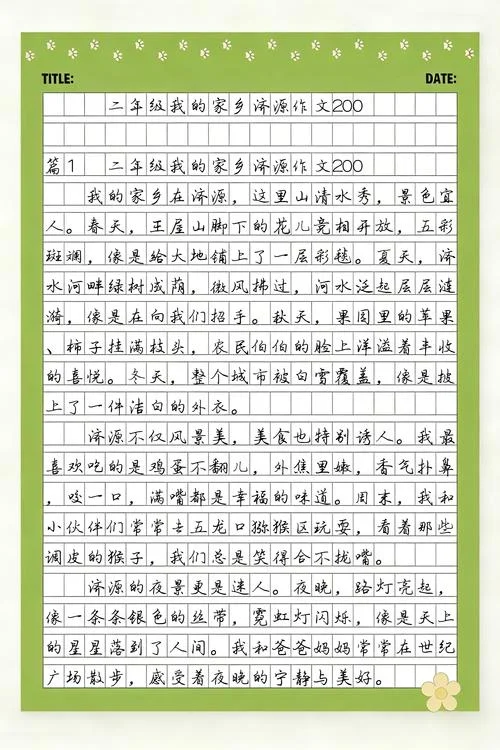 TITLE: DATE:
二年级我的家乡济源作文200
篇1 二年级我的家乡济源作文200
我的家乡在济源，这里山清水秀，景色宜
人。春天，王屋山脚下的花儿竞相开放，五彩
斑斓，像是给大地铺上了一层彩毯。夏天，济
水河畔绿树成荫，微风拂过，河水泛起层层涟
漪，像是在向我们招手。秋天，果园里的苹果
、柿子挂满枝头，农民伯伯的脸上洋溢着丰收
的喜悦。冬天，整个城市被白雪覆盖，像是披
上了一件洁白的外衣。
济源不仅风景美，美食也特别诱人。我最
喜欢吃的是鸡蛋不翻儿，外焦里嫩，香气扑鼻
，咬一口，满嘴都是幸福的味道。周末，我和
小伙伴们常常去五龙口猕猴区玩耍，看着那些
调皮的猴子，我们总是笑得合不拢嘴。
济源的夜景更是迷人。夜晚，路灯亮起，
像一条条银色的丝带，霓虹灯闪烁，像是天上
的星星落到了人间。我和爸爸妈妈常常在世纪
广场散步，感受着夜晚的宁静与美好。